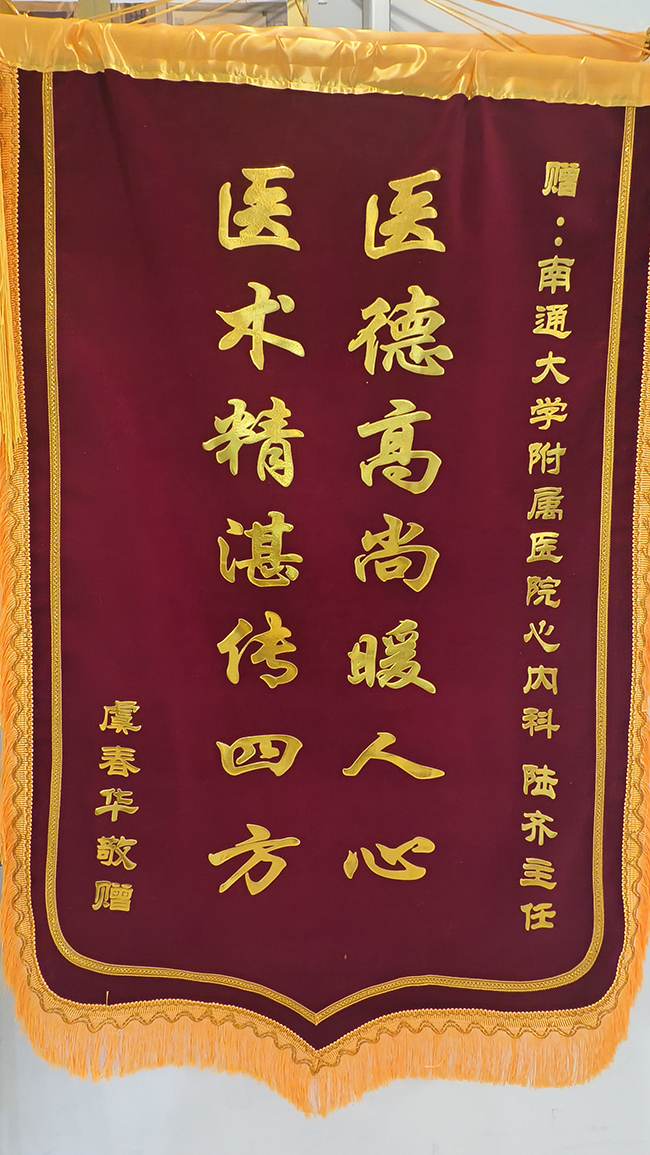 赠：南通大学附属医院心内科 陆齐主任
医德高尚暖人心
医术精湛传四方
虞春华敬赠